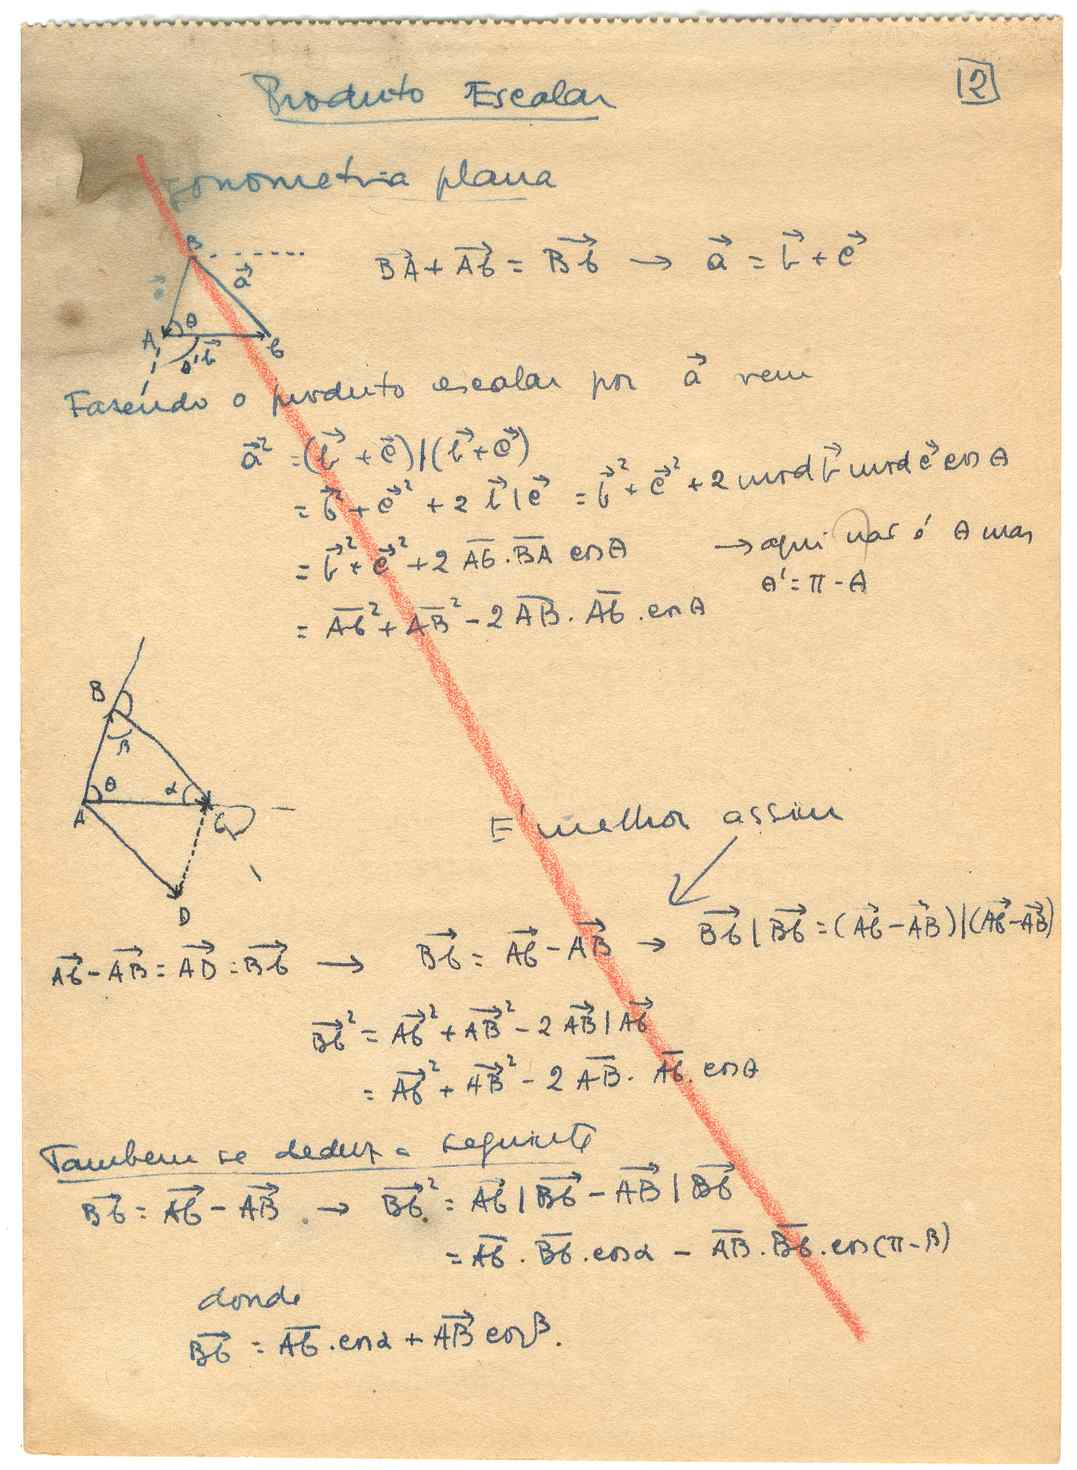 Produto Escalar
12
gonometria plana
B
a⃗
c⃗
A
θ
θ' b⃗
C
B⃗A + A⃗C = B⃗C → a⃗ = b⃗ + c⃗
Fazendo o produto escalar por a⃗ vem
a⃗² = (b⃗ + c⃗)|(b⃗ + c⃗)
= b⃗² + c⃗² + 2 b⃗|c⃗ = b⃗² + c⃗² + 2 mod b⃗ mod c⃗ cos θ
= b⃗² + c⃗² + 2 A̅C̅.B̅A̅ cos θ → aqui nao é θ mas
θ' = π - θ
= A̅C̅² + A̅B̅² - 2 A̅B̅. A̅C̅. cos θ
B
β
θ
α
A
C
D
E' melhor assim
A⃗C - A⃗B = A⃗D = B⃗C → B⃗C = A⃗C - A⃗B → B⃗C|B⃗C = (A⃗C - A⃗B)|(A⃗C - A⃗B)
B⃗C² = A⃗C² + A⃗B² - 2 A⃗B|A⃗C
= A⃗C² + A⃗B² - 2 A̅B̅. A̅C̅. cos θ
Tambem se deduz o seguinte
B⃗C = A⃗C - A⃗B . → B⃗C² = A⃗C|B⃗C - A⃗B|B⃗C
= A̅C̅. B̅C̅. cos α - A̅B̅. B̅C̅. cos(π - β)
donde
B⃗C = A̅C̅. cos α + A⃗B cos β.